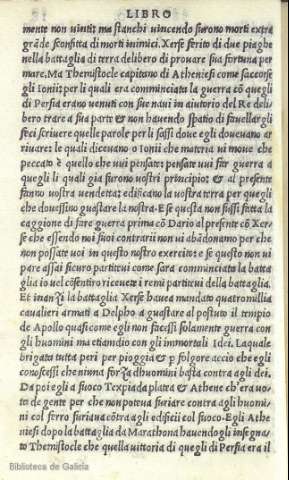 LIBRO
mente non uinti: ma stanchi uincendo furono morti extra
grāde sconfitta di morti inimici. Xerse ferito di due piaghe
nella battaglia di terra delibero di prouare sua fortuna per
mare. Ma Themistocle capitano di Atheniesi come saccorse
gli Ionii: per li quali era comminciata la guerra cō quegli
di Persia erano uenuti con sue naui in aiutorio del Re deli
bero trare a sua parte & non hauendo spatio di fauellargli
feci scriuere quelle parole per li sassi doue egli doueuano ar
riuare: le quali diceuano o Ionii che materia ui moue che
peccato è quello che uui pensate: pensate uui far guerra a
quegli li quali gia furono nostri principio: & al presente
fanno uostra uendetta: edificato la uostra terra per quegli
che douessino guastare la nostra. E se questa non fussi fatta la
caggione di fare guerra prima cō Dario al presente cō Xer
se che essendo noi suoi contrarii non ui abādonamo per che
non possate uoi in questo nostro exercito: e se questo non ui
pare assai sicuro partiti: come sara comminciata la batta
glia io uel cōsentiro riceuete i remi partitiui della battaglia.
Et inanzi la battaglia Xerse haueа mandato quatromillia
caualieri armati a Delpho a guastare al postuto il tempio
de Apollo quasi come egli non facessi solamente guerra con
gli huomini ma etiamdio con gli immortali Idei. Laquale
brigata tutta peri per pioggia & p folgore accio che egli
conoscessi che niuna forza dhuomini basta contra agli dei.
Da poi egli a fuoco Texpia da platea & Athene ch'era uo
te de gente per che non poteua furiare contra agli huomi
ni col ferro furiaua cōtra agli edificii col fuoco. Egli Athe
niesi dopo la battaglia da Marathona hauendogli insegna
to Themistocle che quella uittoria di quegli di Persia era il
Biblioteca de Galicia